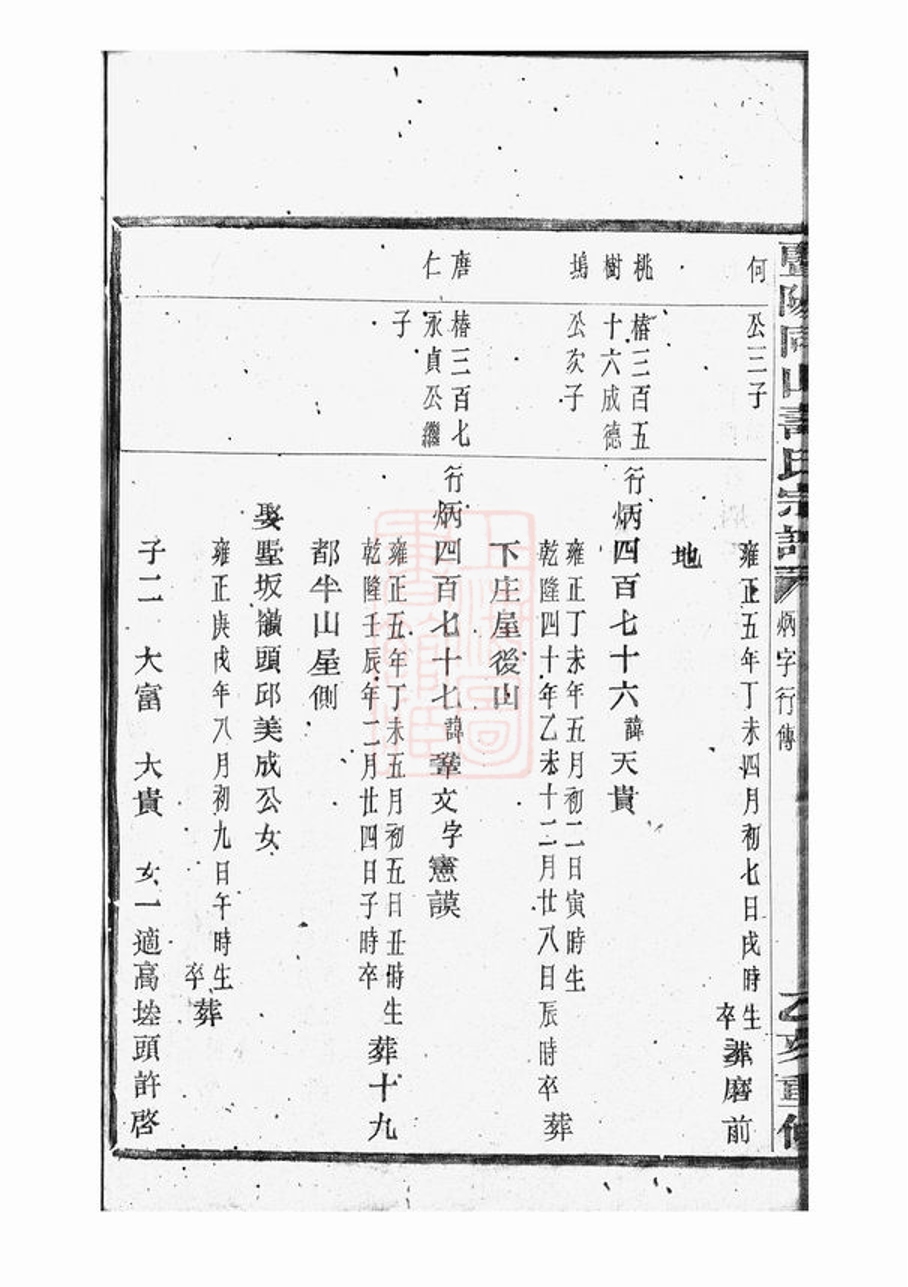 暨陽同山壽氏宗譜
炳字行傳
乙亥重修
何
公三子
雍正五年丁未四月初七日戌時生
卒
葬磨前
地
桃樹塢
椿三百五十六成德公次子
行炳四百七十六諱天貴
雍正丁未年五月初二日寅時生
乾隆四十年乙未十二月廿八日辰時卒
葬
下庄屋後山
唐仁
椿三百七永貞公繼子
行炳四百七十七諱鞏文字憲謨
雍正五年丁未五月初五日丑時生
乾隆壬辰年二月廿四日子時卒
葬十九
都半山屋側
娶墅坂嶺頭邱美成公女
雍正庚戌年八月初九日午時生
卒
葬
子二 大富 大貴 女一適高塔頭許啓
上海圖書館藏